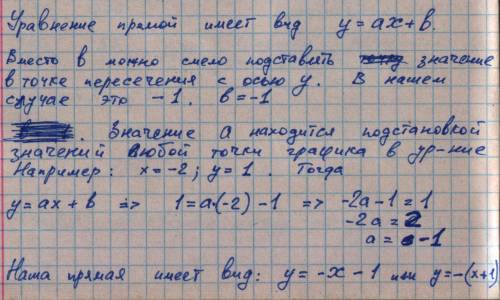 Уравнение прямой имеет вид y = ax + в.
Вместо в можно смело подставить значение
в точке пересечения с осью y. В нашем
случае это -1. в = -1
. Значение а находится подстановкой
значений любой точки графика в ур-ние
Например: x = -2; y = 1. Тогда
y = ax + в => 1 = a·(-2) - 1 => -2a - 1 = 1
-2a = 2
a = -1
Наша прямая имеет вид: y = -x - 1 или y = -(x+1)